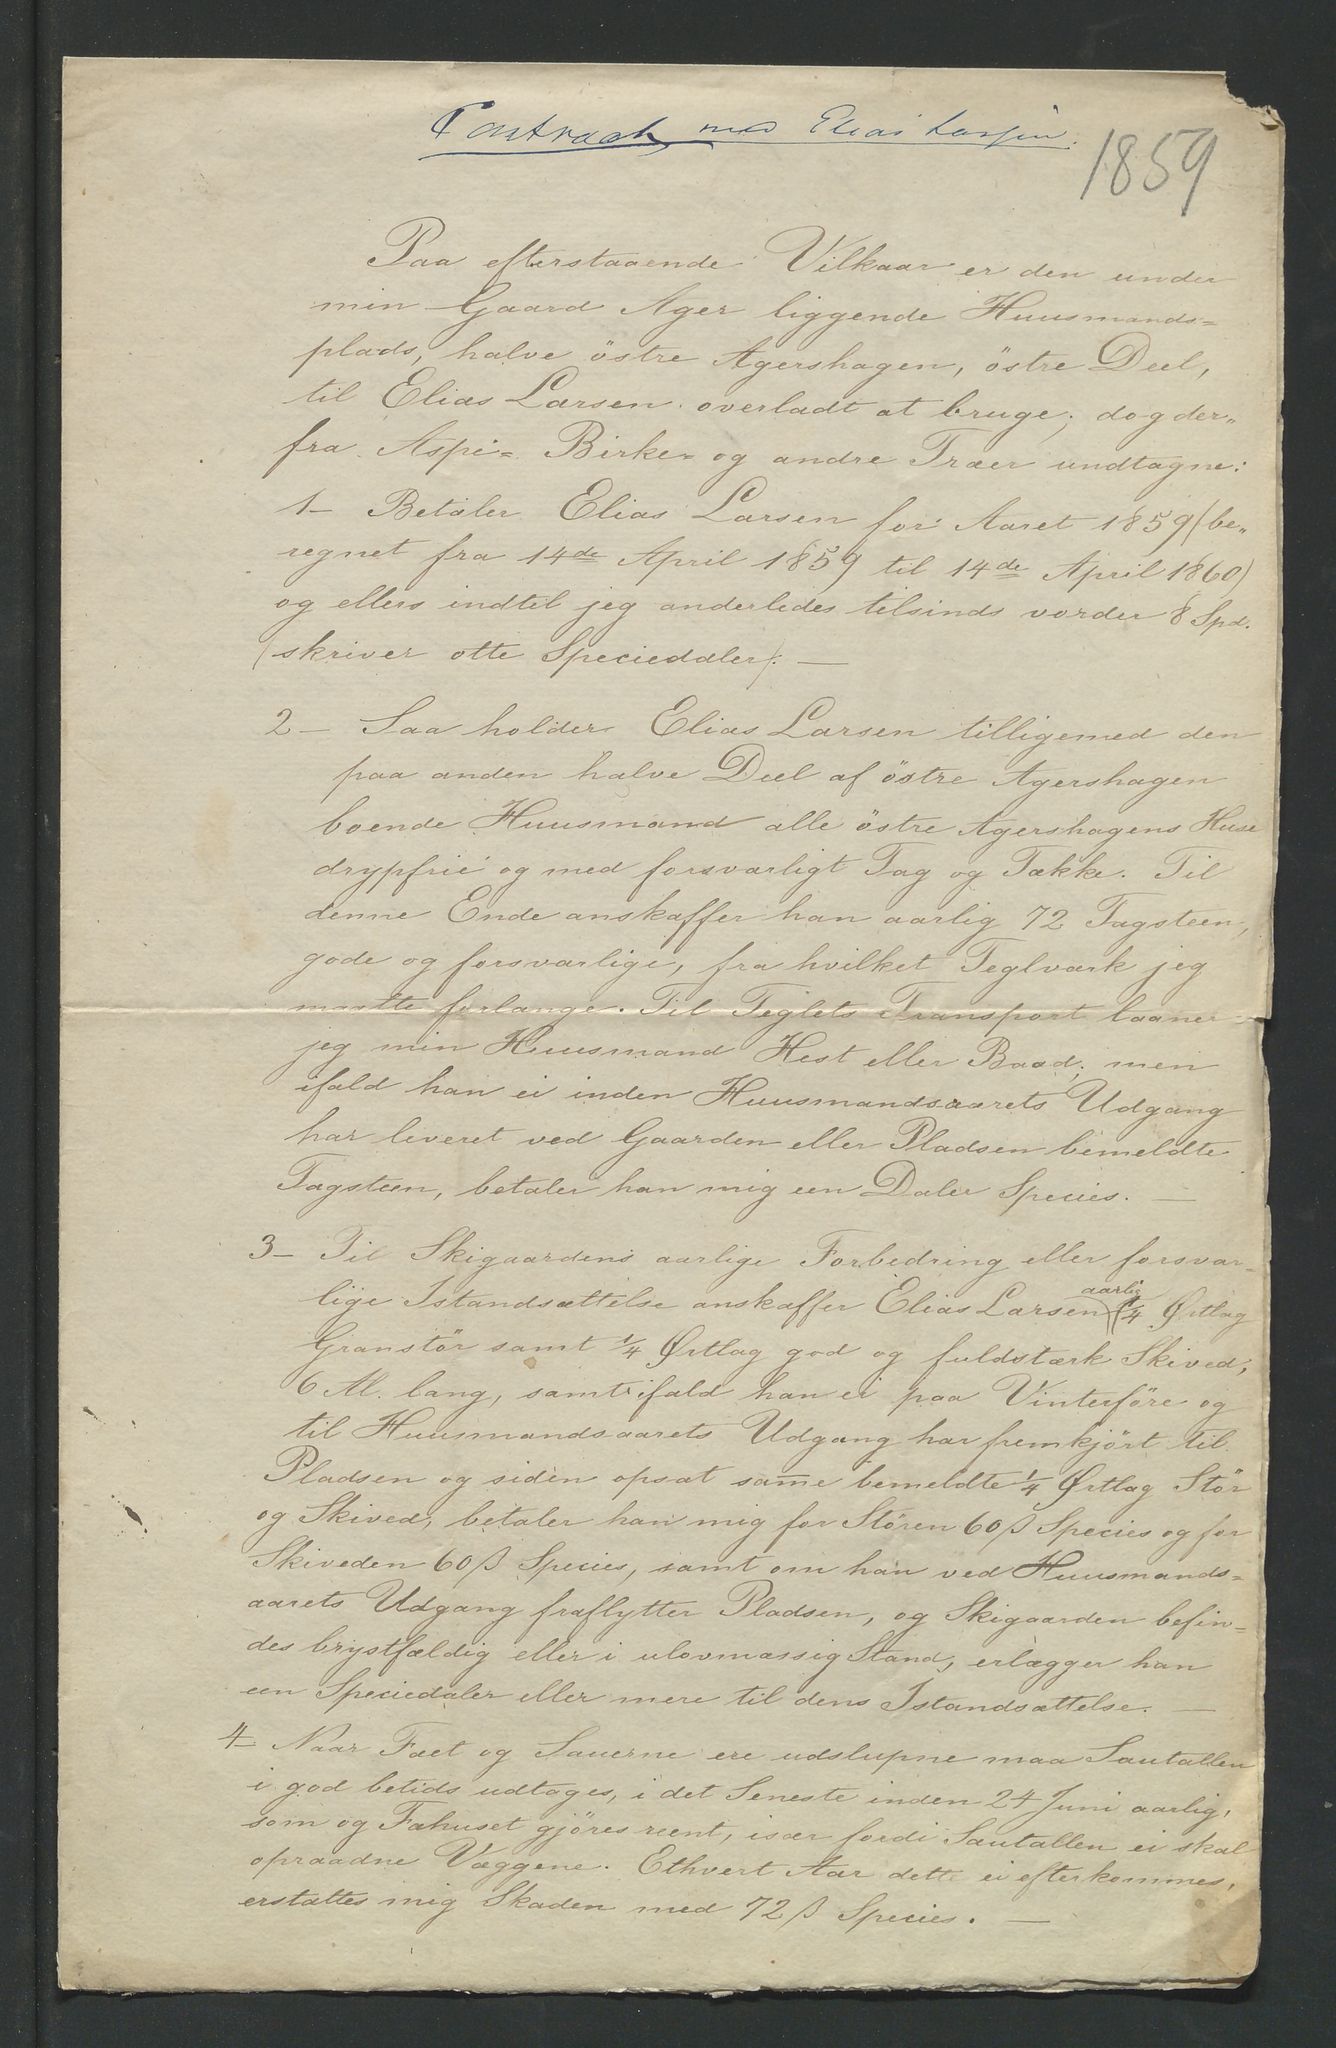 Contract med Elias Larsen.
1859
Paa efterstaaende Vilkaar er den under
min Gaard Ager liggende Huusmands=
plads, halve östre Agershagen, östre Deel,
til Elias Larsen overladt at bruge; dog der„
fra Aspe= Birke= og andre Træer undtagne:
1 - Betaler Elias Larsen for Aaret 1859 (be„
regnet fra 14de April 1859 til 14de April 1860)
og ellers indtil jeg anderledes tilsinds vorder 8 Spd.
(skriver otte Speciedaler). —
2 - Saa holder Elias Larsen tilligemed den
paa anden halve Deel af östre Agershagen
boende Huusmand alle östre Agershagens Huse
drypfrie og med forsvarligt Tag og Tække. Til
denne Ende anskaffer han aarlig 72 Tagsteen,
gode og forsvarlige, fra hvilket Teglværk jeg
maatte forlange. Til Teglets Transport laaner
jeg min Huusmand Hest eller Baad; men
ifald han ei inden Huusmandsaarets Udgang
har leveret ved Gaarden eller Pladsen bemeldte
Tagsteen, betaler han mig een Daler Species. —
3 - Til Skigaardens aarlige Forbedring eller forsvar-
lige Istandsættelse anskaffer Elias Larsen aarlig 1/4 Ørtlag
Granstör samt 1/4 Ørtlag god og fuldstærk Skived,
6 Al. lang, samt ifald han ei paa Vinterföre og
til Huusmandsaarets Udgang har fremkjört til
Pladsen og siden opsat samme bemeldte 1/4 Ørtlag Stör
og Skived, betaler han mig for Stören 60 ß Species og for
Skiveden 60 ß Species, samt om han ved Huusmands=
aarets Udgang fraflytter Pladsen, og Skigaarden befin-
des brystfældig eller i ulovmæssig Stand, erlægger han
een Speciedaler eller mere til dens Istandsættelse. —
4 - Naar Fæet og Sauerne ere udslupne maa Sautallen
i god betids udtages, i det Seneste inden 24 Juni aarlig,
som og Fæhuset gjöres reent, især fordi Sautallen ei skal
opraadne Væggene. Ethvert Aar dette ei efterkommes,
erstattes mig Skaden med 72 ß Species. —